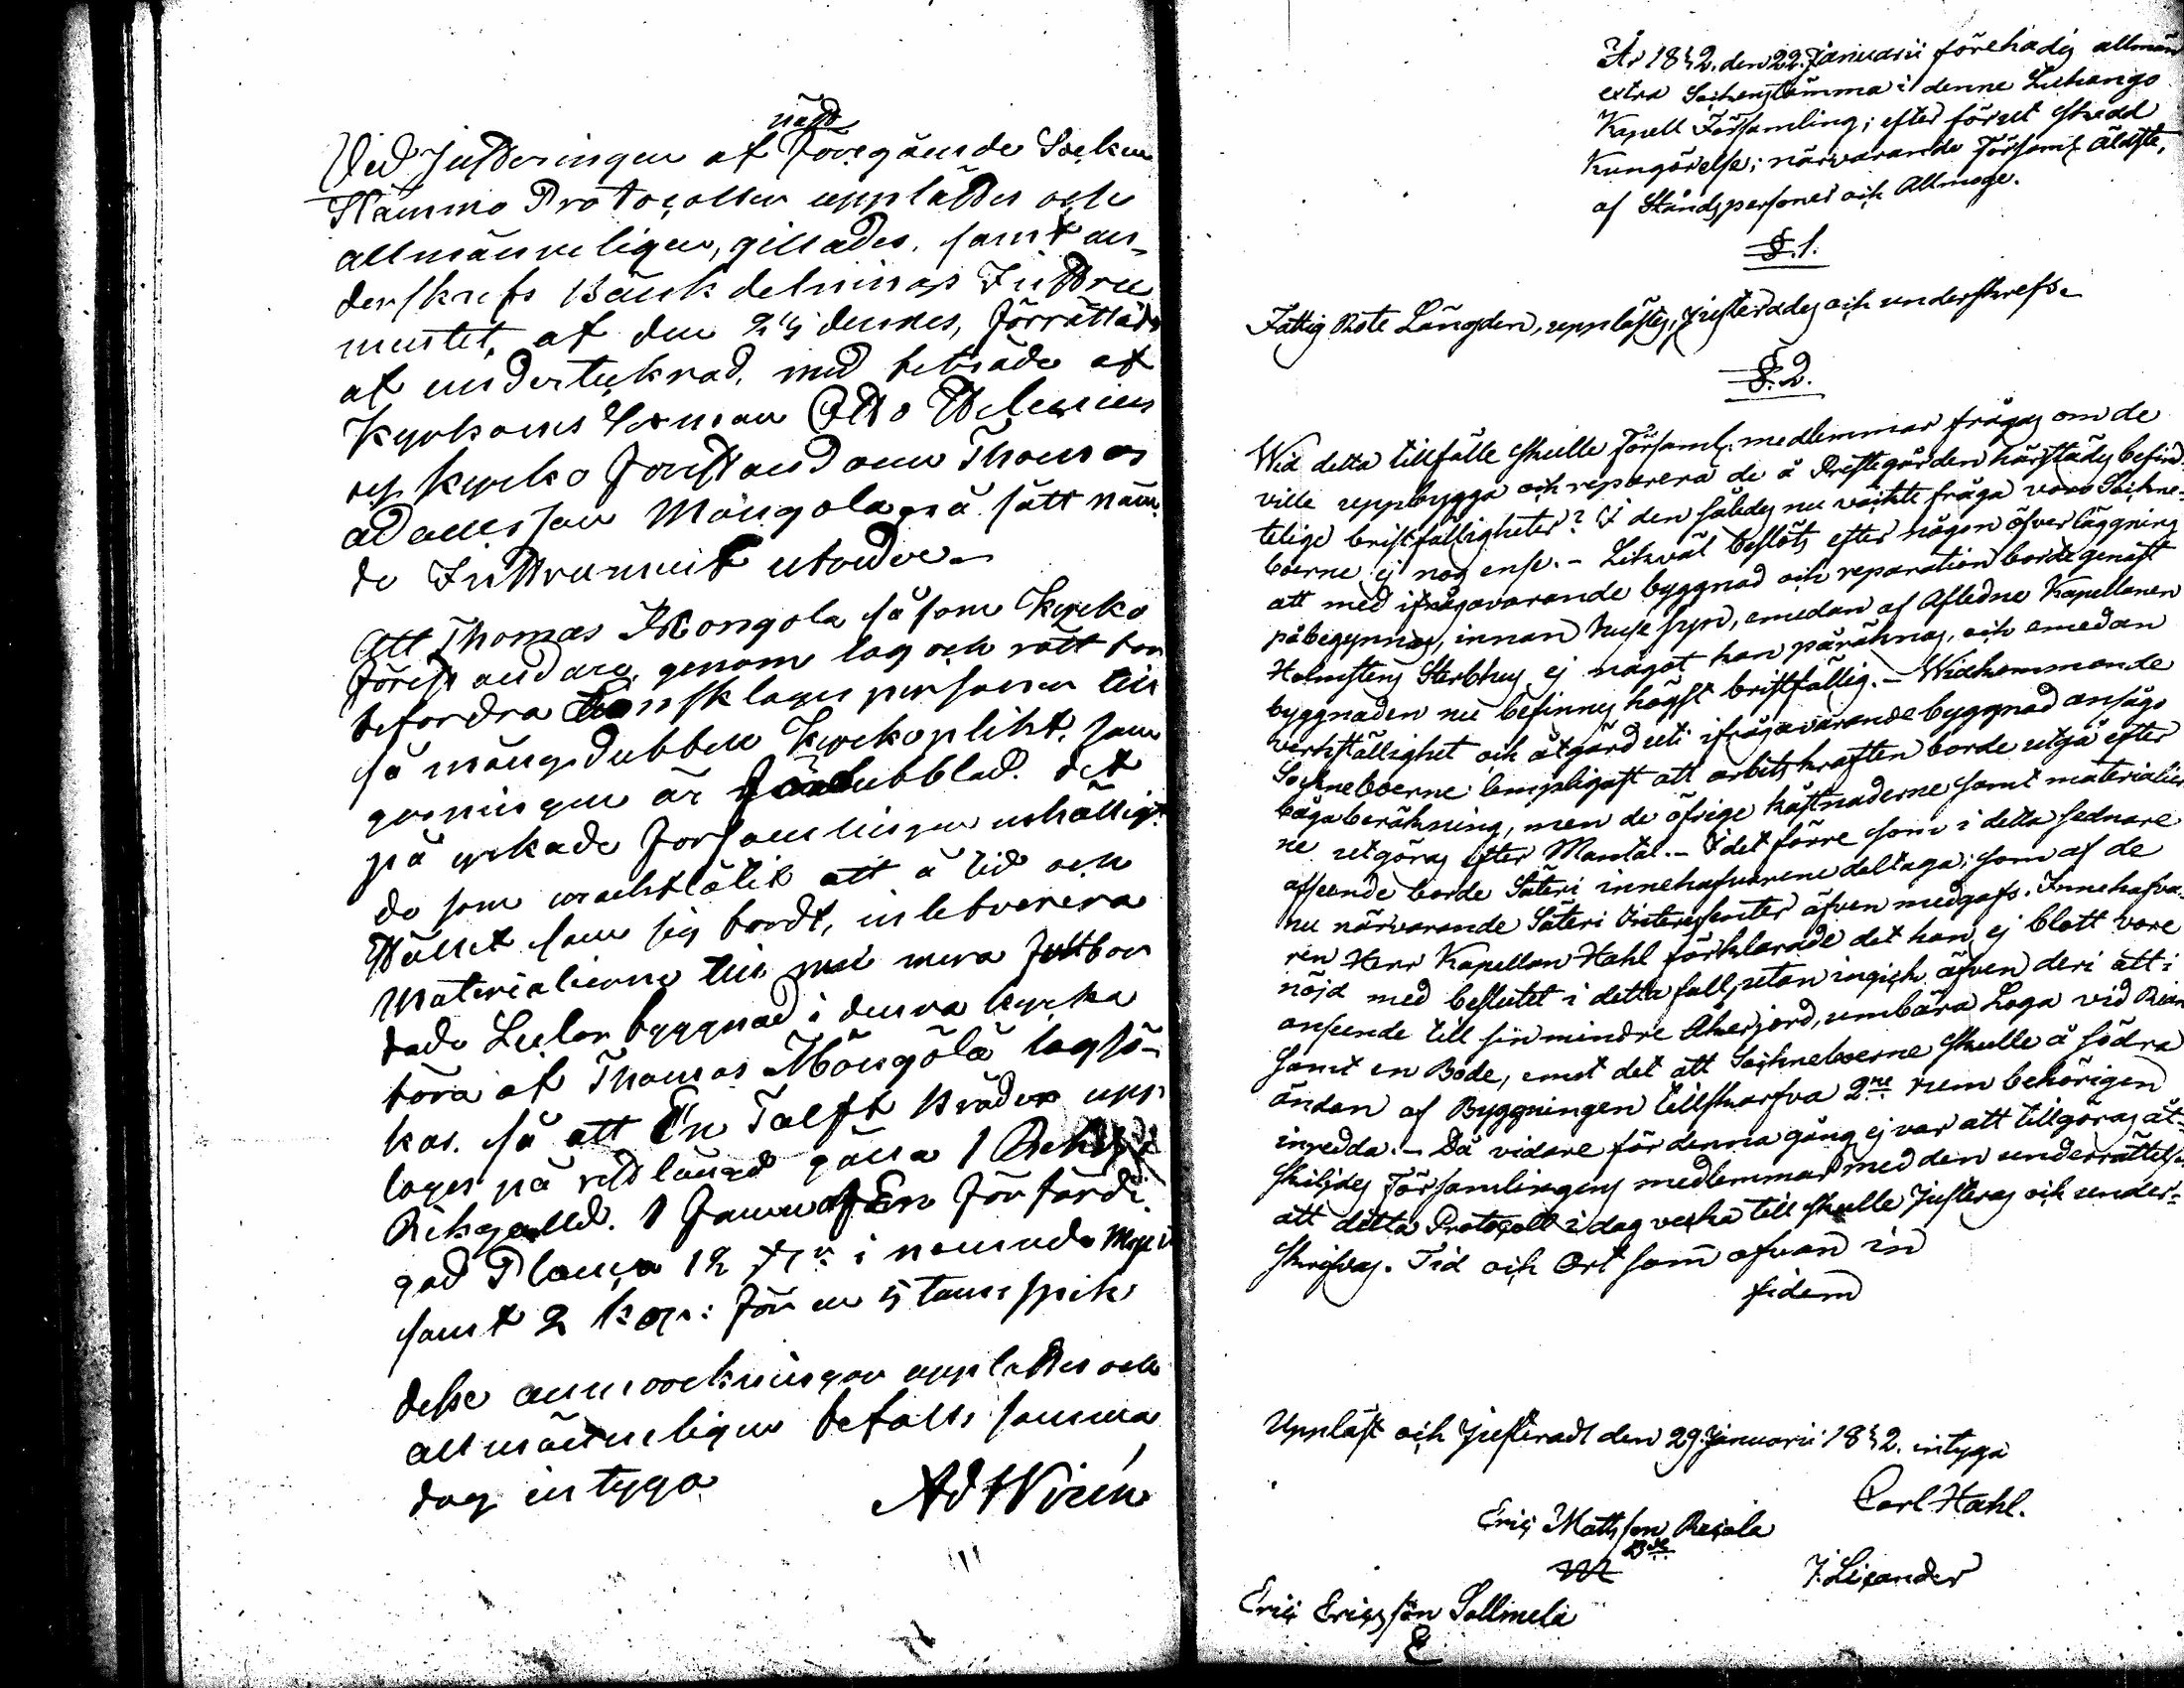 näst
Vid Justeringen af Föregående Socken
Stämmo Protocollen upplästes och
allmänneligen, gillades, samt un-
derskrefs Bänkdelnings Instru
mentet, af den dennes, förrättade
af undertecknad, med biträde af
Kyrkones Sexman Otto
och Kyrko Föreståndaren Thomas
Adamsson Mängola på sätt näm-
de Instrument utvider
Att Thomas Mongola såsom Kyrko
Föreståndare, genom lag och rätt
befordra personer till
så mångdubbel Kyrkoplikt, som
är dubblad. det
på yrkade Församlingen
de som att å tid och
Stället som sig bordt, inleverera
Materialierne till mera
dade byggnad i denna Kyrka
böra af Thomas Mängölä lagsö-
kas. så att En Talft Bräder upp-
tages på längd
Riksgälld. 1 Famn
gad Planka 12 i nämnde
samt 2 kop: för en 5 tums spik
desse anmärkningar upplästes och
allmänneligen befalls samma
dag intyga
Ad Wirén
År 1842. den 22. Januarii förehades allmän
extra Sockenstämma i denne Luhango
Kapell Församling; efter förut skedd
Kungörelse; närvarande Församl. Äldste,
af Ståndspersoner och Allmoge.
§.1.
Fattig Rote Längden, upplästes, justerades och underskrefs.
§.2.
Wid detta tillfälle skulle Församl. medlemmar frågas om de
ville uppbygga och reparera de å Prestegården härstädes befind-
telige bristfälligheter? I den således nu väckte fråga voro Sockne-
boerne ej nog ense. - Likväl beslöts efter någon öfverläggning
att med ifrågavarande byggnad och reparation borde genast
påbegynnas, innan huse syn, emedan af Afledne Kapellanen
Holmstens Sterbhus, ej något kan påräknas, och emedan
byggnaden nu befinnes högst bristfällig. - Widkommande
verkställighet och åtgärd uti ifrågavarande byggnad ansågo
Sockneboerne lämpligast att arbetskraften borde utgå efter
bågaberäkning, men de öfrige kåstnaderne samt materialier
ne utgöras efter Mantal. - I det förre som i detta sednare
afseende borde Säteri innehafvarene deltaga; som af de
nu närvarande Säteri Interessenter äfven medgafs. Innehafva
ren Herr Kapellan Hahl förklarade det han ej blott vore
nöjd med beslutet i detta fall, utan ingick äfven deri att i
anseende till sin mindre Åkerjord, umbära Loga vid
samt en Bode, emot det att Sockneboerne skulle å södra
ändan af Byggningen tillskarfva 2ne rum behörigen
inredda. - Då vidare för denna gång ej var att tillgöras åt-
skiljdes Församlingens medlemmar med den underrättelse
att detta Protocoll i dag vecka till skulle Justeras och under-
skrifvas. Tid och Ort som ofvan in
fidem
Uppläst och Justeradt den 29. Januarii 1842. intyga
Carl Hahl.
Eric Mattsson
J. Lixander
Eric Ericsson Sallmela
E